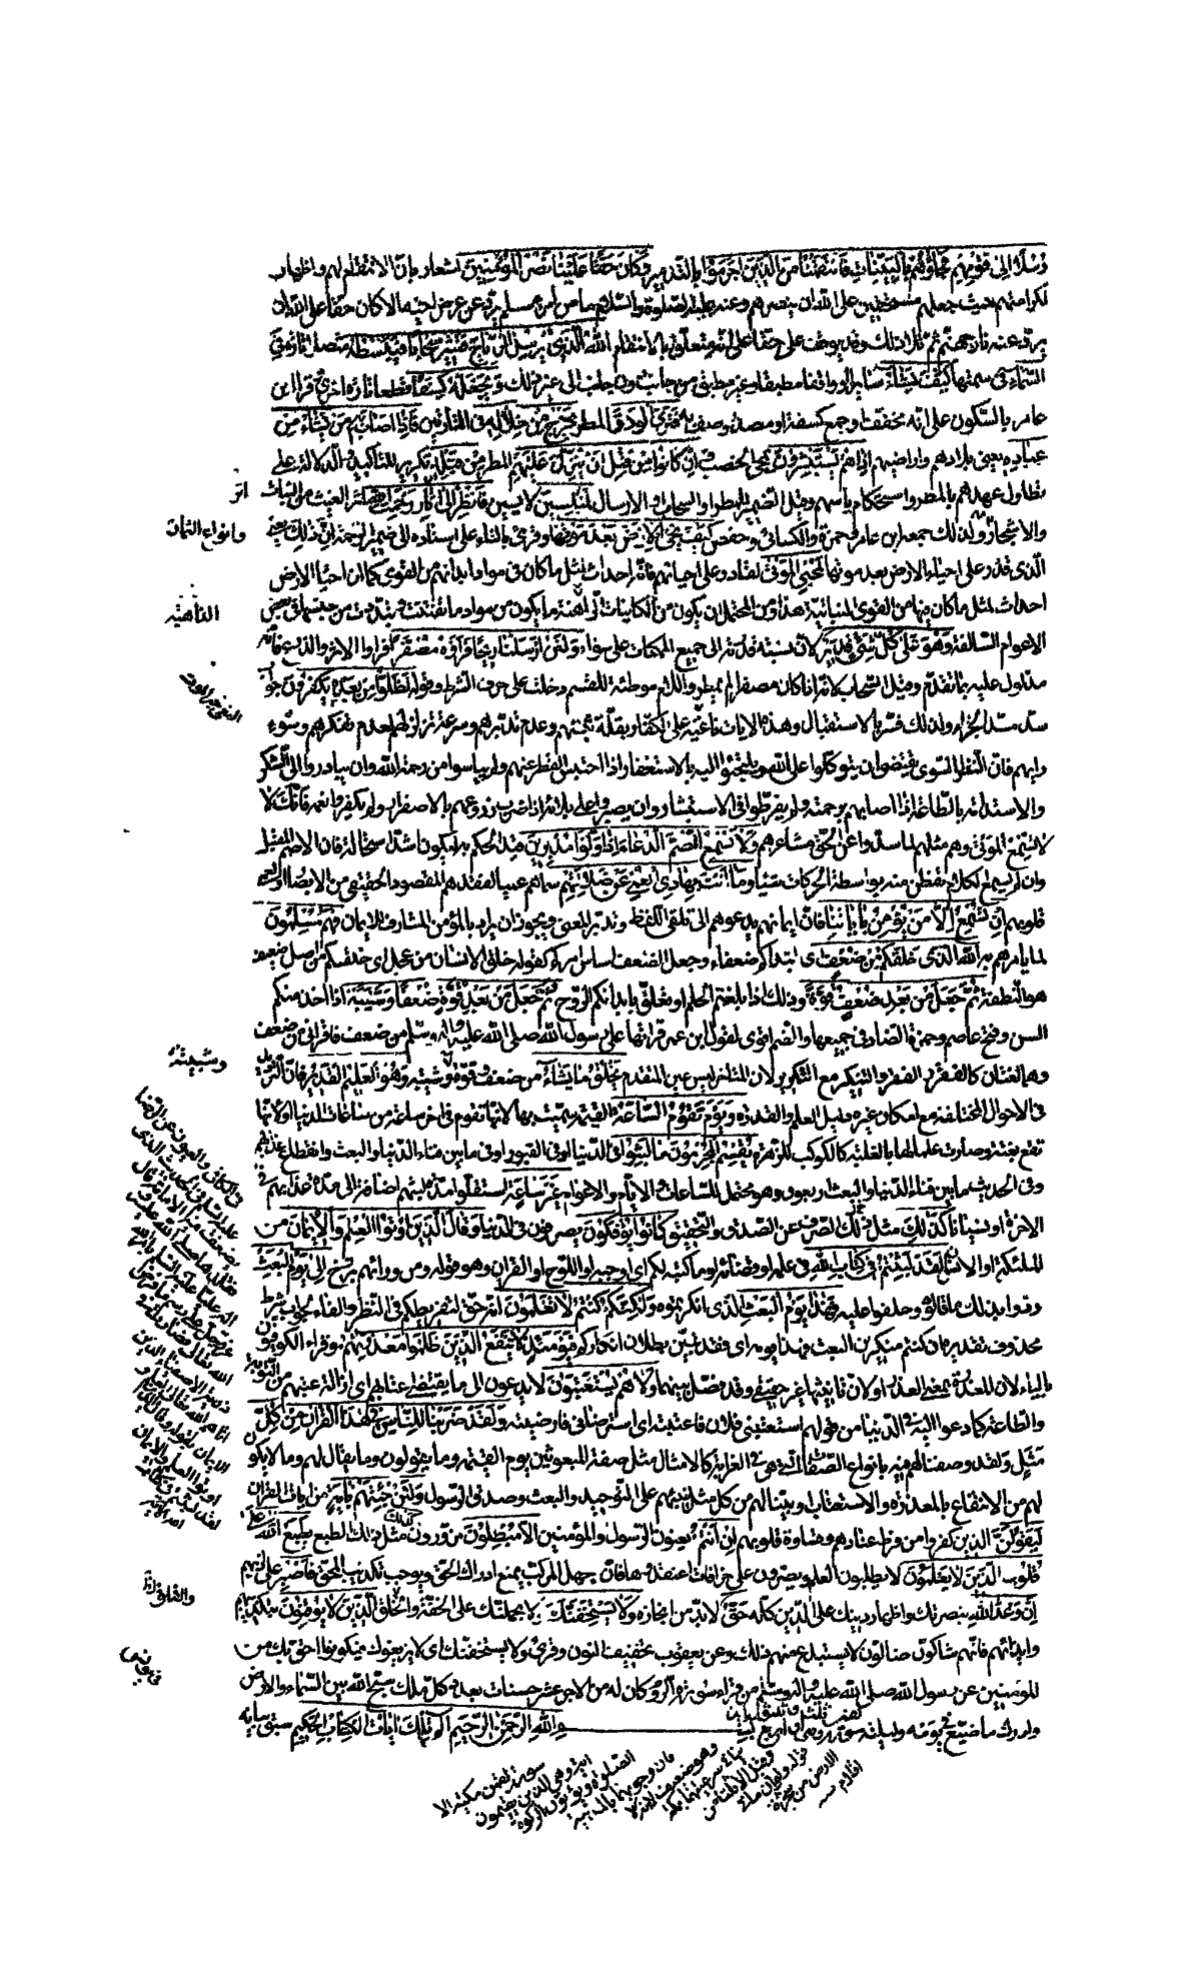 رسلا الى قومهم فجاؤهم بالبينات فانتقمنا من الذين اجرموا بالتدمير وكان حقا علينا نصر المؤمنين اشعار بان الانتقام لهم واظهار
لكرامتهم حيث جعلهم مستحقين على الله ان ينصرهم وعنه عليه الصلوة والسلام ما من امرء مسلم يرد عن عرض اخيه الا كان حقا على الله ان
يرد عنه نار جهنم ثم تلا ذلك وقد يوقف على حقا على انه متعلق بالانتقام الله الذى يرسل الرياح فتثير سحابا فيبسطه متصلا تارة فى
السماء فى سمتها كيف يشاء سايرا وواقفا مطبقا وغير مطبق من جانب دون جانب الى غير ذلك ويجعله كسفا قطعا تارة اخرى وقرا ابن
عامر بالسكون على انه مخفف او جمع كسفة او مصدر وصف به فترى الودق المطر يخرج من خلاله فى التارتين فاذا اصاب به من يشاء من
عباده يعنى بلادهم واراضيهم اذا هم يستبشرون بمجئ الخصب وان كانوا من قبل ان ينزل عليهم المطر من قبله تكرير للتاكيد والدلالة على
تطاول عهدهم بالمطر واستحكام ياسهم وقيل الضمير للمطر او السحاب او الارسال لمبلسين لآيسين فانظر الى آثار رحمت الله اثر الغيث من النبات
والاشجار ولذلك جمعه ابن عامر وحمزة والكسائى وحفص كيف يحيى الارض بعد موتها وقرئ بالتاء على اسناده الى ضمير الرحمة ان ذلك يعنى
الذى قدر على احياء الارض بعد موتها لمحيى الموتى لقادر على احيائهم فانه احداث لمثل ما كان فى مواد ابدانهم من القوى كما ان احياء الارض
احداث لمثل ما كان فيها من القوى النباتية هذا ومن المحتمل ان يكون من الكاينات الراهنة ما يكون من مواد ما تفتتت وتبددت من جنسها فى بعض
الاعوام السالفة وهو على كل شئ قدير لان نسبة قدرته الى جميع الممكنات على سواء ولئن ارسلنا ريحا فراوه مصفرا فراوا الاثر والزرع فانه
مدلول عليه بما تقدم وقيل السحاب لانه اذا كان مصفرا لم يمطر واللام موطئة للقسم دخلت على حرف الشرط وقوله لظلوا من بعده يكفرون جواب
سد مسد الجزاء ولذلك فسر بالاستقبال وهذه الايات ناعية على الكفار بقلة تثبتهم وعدم تدبرهم وسرعة تزلزلهم لعدم تفكرهم وسوء
رايهم فان النظر السوى يقتضى ان يتوكلوا على الله ويلتجئوا اليه بالاستغفار اذا احتبس القطر عنهم ولم يياسوا من رحمة الله وان يبادروا الى الشكر
والاستدامة بالطاعة اذا اصابهم برحمته ولم يفرطوا فى الاستبشار وان يصبروا على بلائه اذا ضرب زروعهم بالاصفرار ولم يكفروا نعمه فانك لا
لا تسمع الموتى وهم مثلهم لما سدوا عن الحق مشاعرهم ولا تسمع الصم الدعاء اذا ولوا مدبرين قيد الحكم به ليكون اشد استحالة فان الاصم المقبل
وان لم يسمع الكلام يفطن منه بواسطة الحركات شيئا وما انت بهادى العمى عن ضلالتهم سماهم عميا لفقدهم المقصود الحقيقى من الابصار او لعمى
قلوبهم ان تسمع الا من يؤمن باياتنا فان ايمانهم يدعوهم الى تلقى اللفظ وتدبر المعنى ويجوز ان يراد بالمؤمن المشارف للايمان فهم مسلمون
لما يامرهم به الله الذى خلقكم من ضعف اى ابتداكم ضعفاء وجعل الضعف اساس امركم كقوله خلق الانسان من عجل او خلقكم من اصل ضعيف
هو النطفة ثم جعل من بعد ضعف قوة وذلك اذا بلغتم الحلم او تعلق بابدانكم الروح ثم جعل من بعد قوة ضعفا وشيبة اذا اخذ منكم
السن وفتح عاصم وحمزة الضاد فى جميعها والضم اقوى لقول ابن عمر قراتها على رسول الله صلى الله عليه واله وسلم من ضعف فاقرانى من ضعف
وهما لغتان كالفقر والفقر والتنكير مع التكرير لان المتاخر ليس عين المتقدم يخلق ما يشاء من ضعف وقوة وشيبة وهو العليم القدير فان الترديد
فى الاحوال المختلفة مع امكان غيره دليل العلم والقدرة ويوم تقوم الساعة القيمة سميت بها لانها تقوم فى اخر ساعة من ساعات الدنيا او لانها
تقع بغتة وصارت علما لها بالغلبة كالكوكب للزهرة يقسم المجرمون ما لبثوا فى الدنيا او فى القبور او فى ما بين فناء الدنيا والبعث وانقطاع عذابهم
وفى الحديث ما بين فناء الدنيا والبعث اربعون وهو محتمل للساعات والايام والاعوام غير ساعة استقلوا مدة لبثهم اضافة الى مدة عذابهم فى
الاخرة او نسيانا كذلك مثل ذلك الصرف عن الصدق والتحقيق كانوا يؤفكون يصرفون فى الدنيا وقال الذين اوتوا العلم والايمان من
الملئكة او الانس لقد لبثتم فى كتاب الله فى علمه او قضائه او ما كتبه لكم اى اوجبه او اللوح او القران وهو قوله ومن ورائهم برزخ الى يوم البعث
ردوا بذلك ما قالوه وحلفوا عليه فهذا يوم البعث الذى انكرتموه ولكنكم كنتم لا تعلمون انه حق لتفريطكم فى النظر والفاء لجواب شرط
محذوف تقديره ان كنتم منكرين البعث فهذا يومه اى فقد تبين بطلان انكاركم فيومئذ لا ينفع الذين ظلموا معذرتهم وقراء الكوفيون
بالياء لان المعذرة بمعنى العذر او لان تانيثها غير حقيقى وقد فصل بينهما ولا هم يستعتبون لا يدعون الى ما يقتضى اعتابهم اى ازالة عتبهم من التوبة
والطاعة كما دعوا اليه فى الدنيا من قولهم استعتبنى فلان فاعتبته اى استرضانى فارضيته ولقد ضربنا للناس فى هذا القران من كل
مثل ولقد وصفنا لهم فيه بانواع الصفات التى هى فى الغرابة كالامثال مثل صفة المبعوثين يوم القيمة وما يقولون وما يقال لهم وما لا يكون
لهم من الانتفاع بالمعذرة والاستعتاب او بينا لهم من كل مثل ينبههم على التوحيد والبعث وصدق الرسول ولئن جئتهم باية من ايات القران
ليقولن الذين كفروا من فرط عنادهم وقساوة قلوبهم ان انتم يعنون الرسول والمؤمنين الا مبطلون مزورون كذلك مثل ذلك الطبع يطبع الله على
قلوب الذين لا يعلمون لا يطلبون العلم ويصرون على خرافات اعتقدوها فان جهل المركب يمنع ادراك الحق ويوجب تكذيب المحق فاصبر على اذيهم
ان وعد الله بنصرتك واظهار دينك على الدين كله حق لا بد من انجازه ولا يستخفنك ولا يحملنك على الخفة والقلق الذين لا يوقنون بتكذيبهم
وايذائهم فانهم شاكون ضالون لا يستبدع منهم ذلك وعن يعقوب بتخفيف النون وقرئ ولا يستحقنك اى لا يزيغوك فيكونوا احق بك من
المؤمنين عن رسول الله صلى الله عليه واله وسلم من قراء سورة الروم كان له من الاجر عشر حسنات بعدد كل ملك سبح الله بين السماء والارض
وادرك ما ضيع فى يومه وليلته سورة لقمان ثلث وثلثون اية بسم الله الرحمن الرحيم الم تلك ايات الكتاب الحكيم سبق بيانه
اثر
وانواع الثمار
الراهنة
وشيبة
والقلق
سورة لقمن مكية الا
اية وهى الذين يقيمون
الصلوة ويؤتون الزكوة
فان وجوبهما بالمدينة